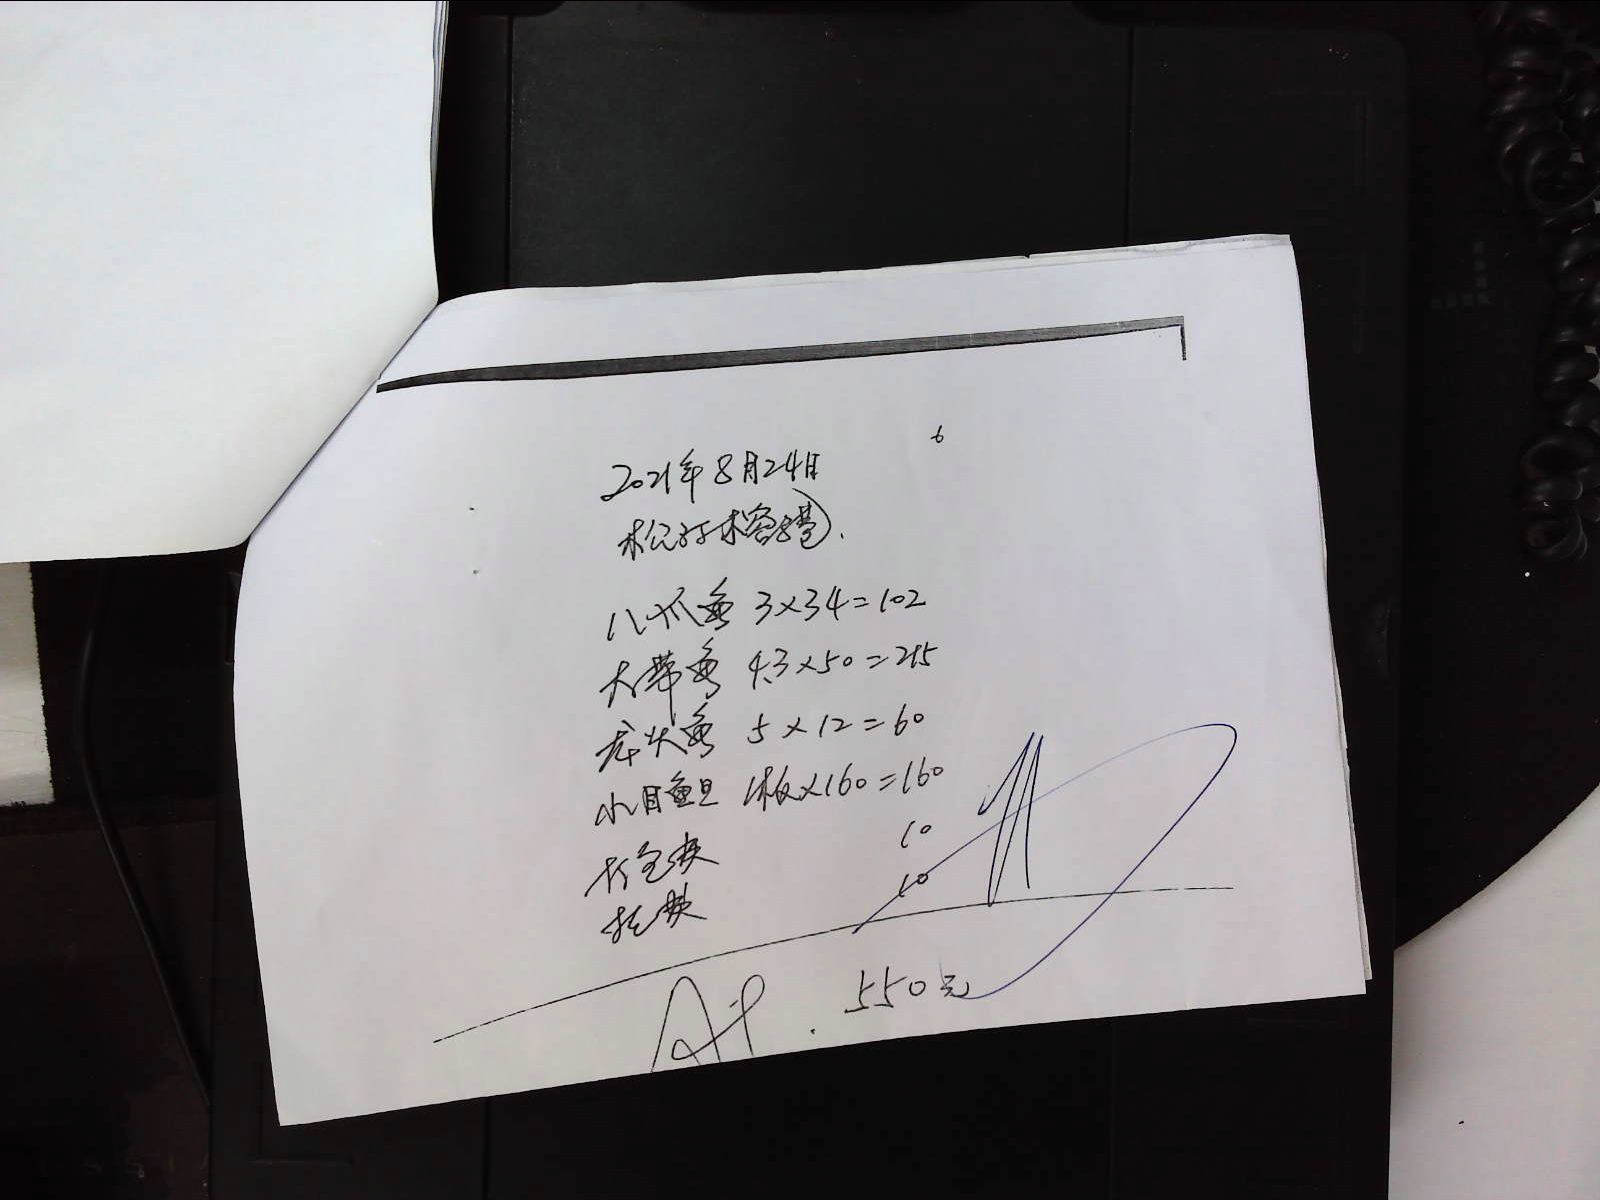 6
2021年8月24日
八爪鱼 3×34=102
大带鱼 4.3×50=215
龙头鱼 5×12=60
小目鱼旦 1板×160=160
打包费 10
托费 10
550元